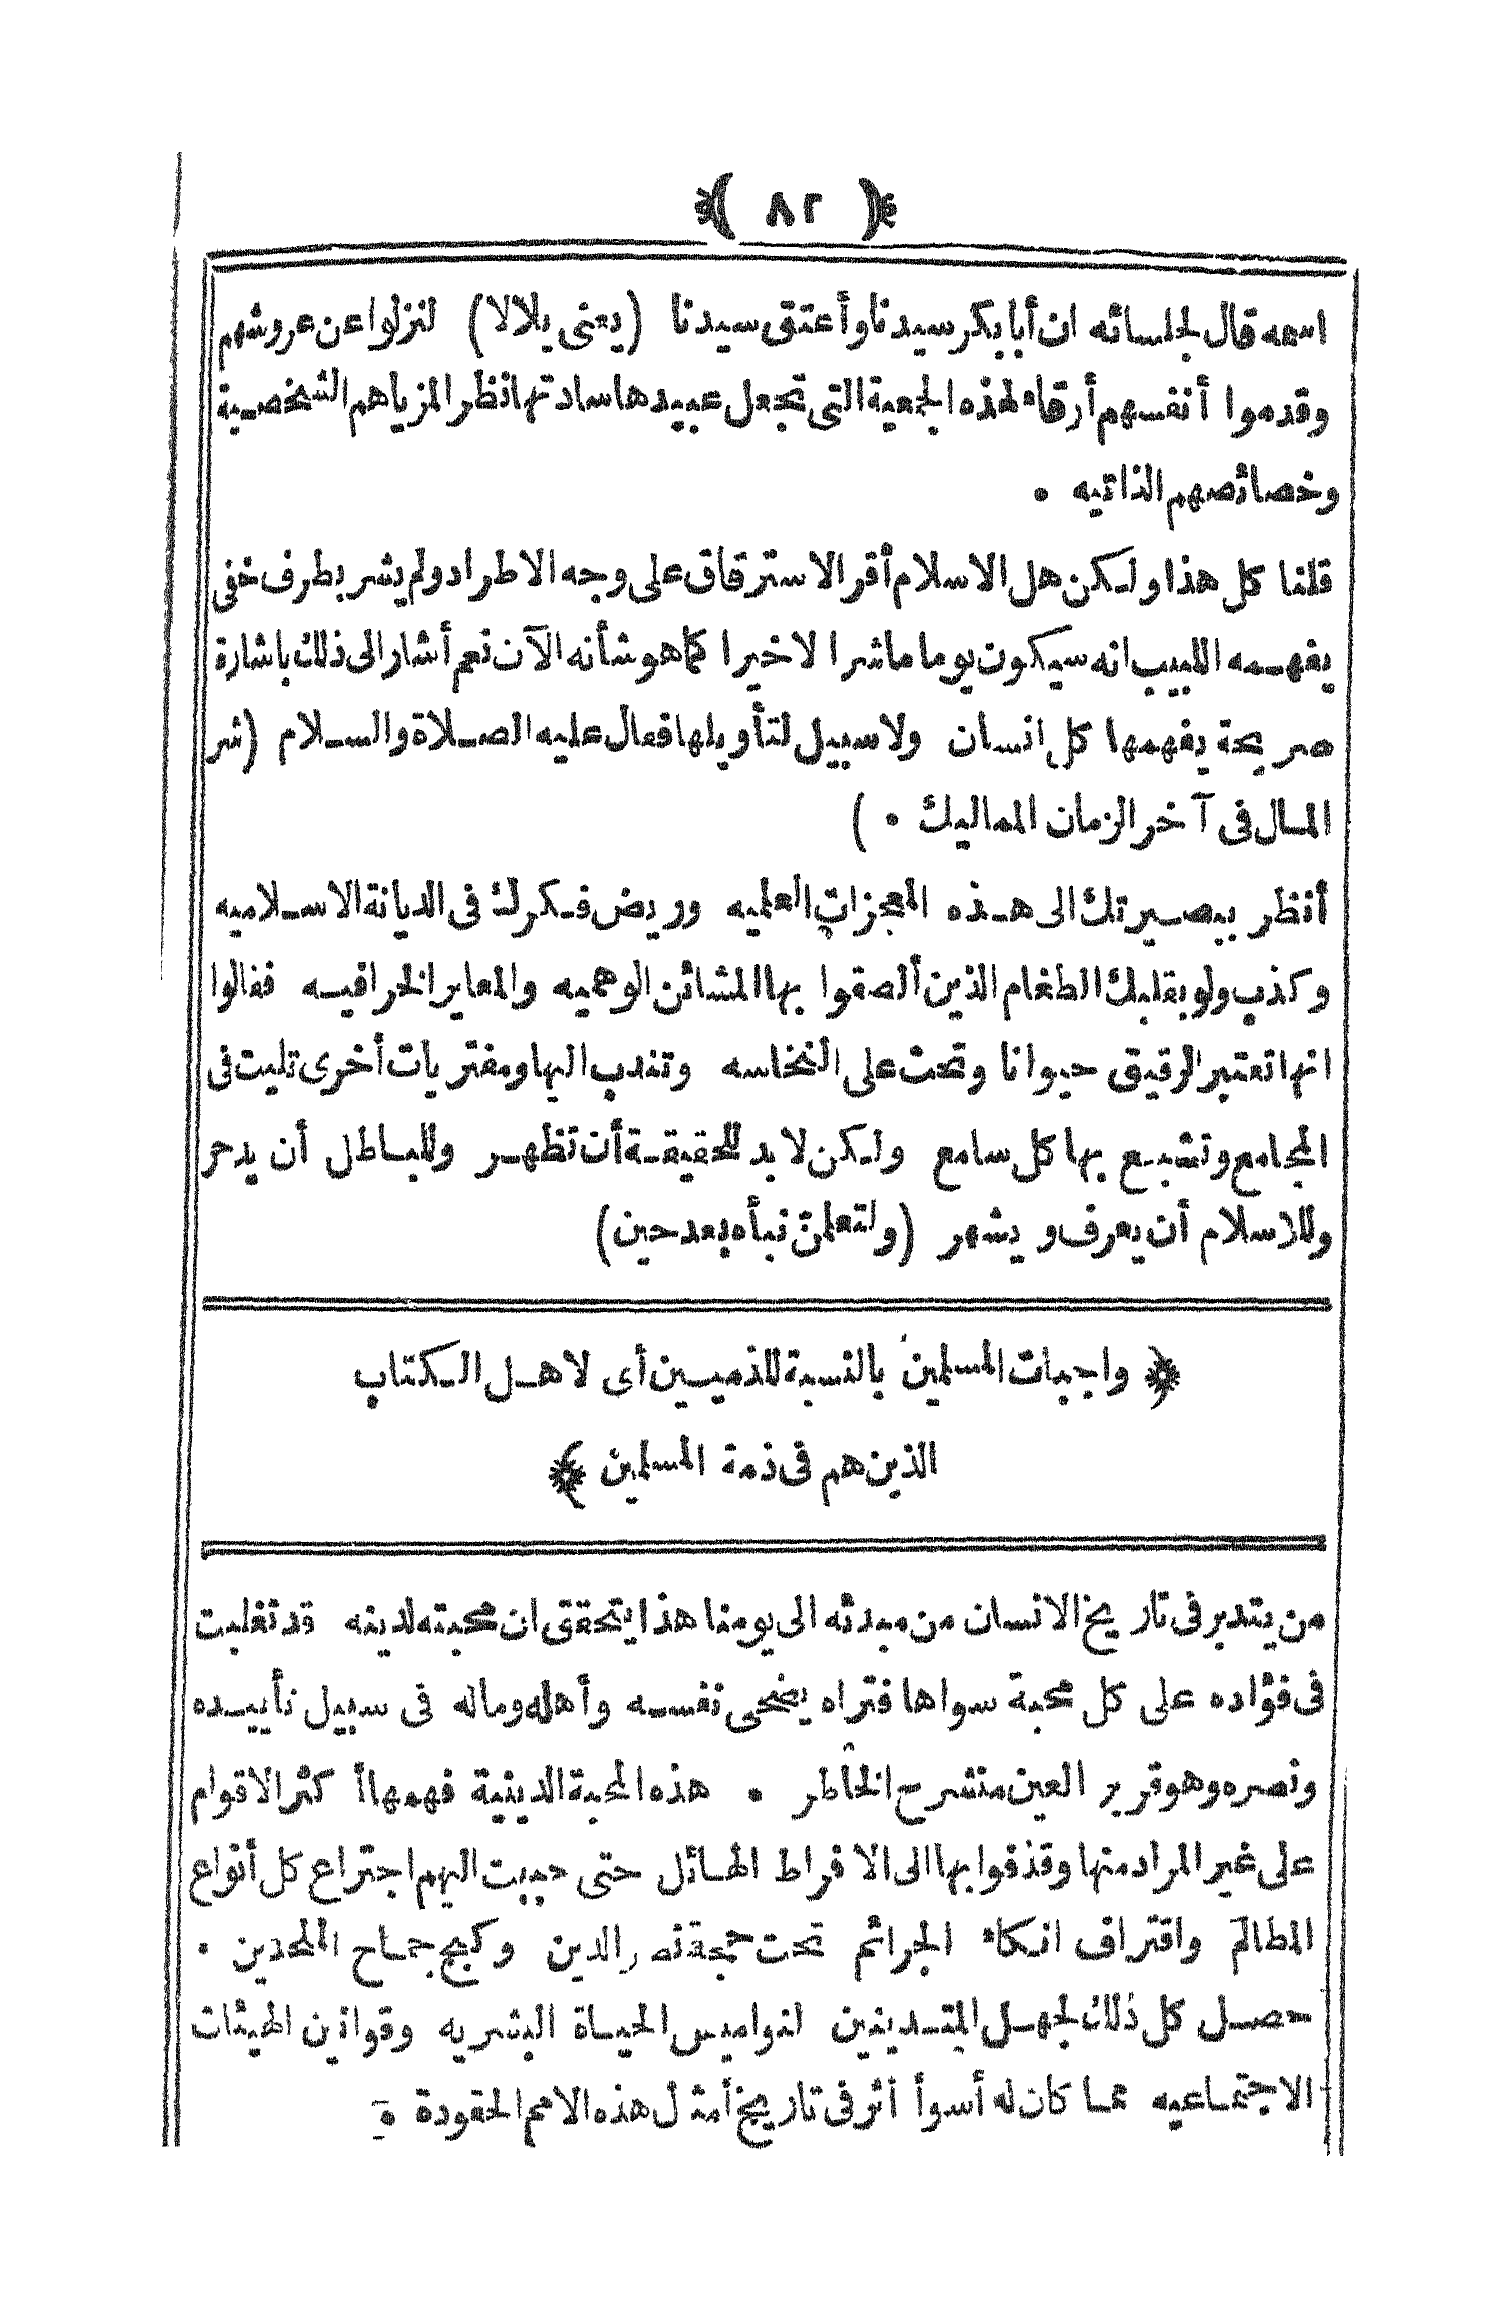 ﴿ ٨٢ ﴾
اسمه قال لجلسائه ان أبا بكر سيدنا وأعتق سيدنا (يعنى بلالا) لنزلوا عن عروشهم
وقدموا أنفسهم أرقاء لهذه الجمعية التى تجعل عبيدها ساداتها نظرا لمزياهم الشخصية
وخصائصهم الذاتيه •
قلنا كل هذا ولكن هل الاسلام أقر الاسترقاق على وجه الاطراد ولم يشر بطرف خفى
يفهمه اللبيب انه سيكون يوما ما شرا لا خيرا كما هو شأنه الآن نعم أشار الى ذلك باشارة
صريحة يفهمها كل انسان ولا سبيل لتأويلها فقال عليه الصلاة والسلام (شر
المال فى آخر الزمان المماليك • )
أنظر ببصيرتك الى هذه المعجزات العلميه وريض فكرك فى الديانة الاسلاميه
وكذب ولو بقلبك الطغام الذين ألصقوا بها المشائن الوهميه والمعاير الخرافيه فقالوا
انها تعتبر الرقيق حيوانا وتحث على النخاسه وتندب اليها ومفتريات أخرى تليت فى
المجامع وتشبع بها كل سامع ولكن لا بد للحقيقة أن تظهر وللباطل أن يدحر
وللاسلام أن يعرف ويشهر (ولتعلمن نبأه بعد حين)
﴿ واجبات المسلمين بالنسبة للذميين أى لاهل الكتاب
الذين هم فى ذمة المسلمين ﴾
من يتدبر فى تاريخ الانسان من مبدئه الى يومنا هذا يتحقق ان محبته لدينه قد تغلبت
فى فؤاده على كل محبة سواها فتراه يضحى نفسه وأهله وماله فى سبيل تأييده
ونصره وهو قرير العين منشرح الخاطر • هذه المحبة الدينية فهمها أكثر الاقوام
على غير المراد منها وقذفوا بها الى الافراط الهائل حتى حببت اليهم اجتراع كل أنواع
المظالم واقتراف انكاء الجرائم تحت حجة نصر الدين وكبح جماح الملحدين •
حصل كل ذلك لجهل المتدينين لنواميس الحياة البشريه وقوانين الهيئات
الاجتماعيه مما كان له أسوأ أثر فى تاريخ أمثال هذه الامم الحقودة